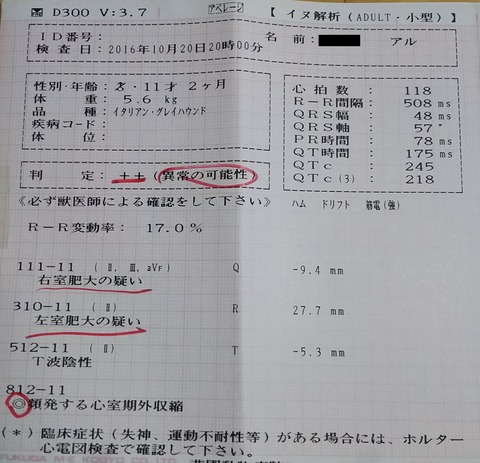 D300 V:3.7
アベレージ
【 イヌ解析(ADULT・小型) 】
ID番号:
名 前: アル
検査日:2016年10月20日20時00分
性別・年齢:♂・11才 2ヶ月
体 重: 5.6 kg
品 種:イタリアン・グレイハウンド
疾病コード:
体 位:
心拍数 : 118
R-R間隔: 508 ms
QRS幅 : 48 ms
QRS軸 : 57°
PR時間 : 78 ms
QT時間 : 175 ms
QTc : 245
QTc(3) : 218
判 定:++(異常の可能性
《必ず獣医師による確認をして下さい》
ハム ドリフト 筋電(強)
R-R変動率: 17.0%
111-11 (Ⅱ, Ⅲ, aVF) Q -9.4 mm
右室肥大の疑い
310-11 (Ⅱ) R 27.7 mm
左室肥大の疑い
512-11 (Ⅱ) T -5.3 mm
T波陰性
812-11
◎頻発する心室期外収縮
(*)臨床症状(失神、運動不耐性等)がある場合には、ホルター
心電図検査で確認して下さい。
FUKUDA M-E KOGYO CO LTD